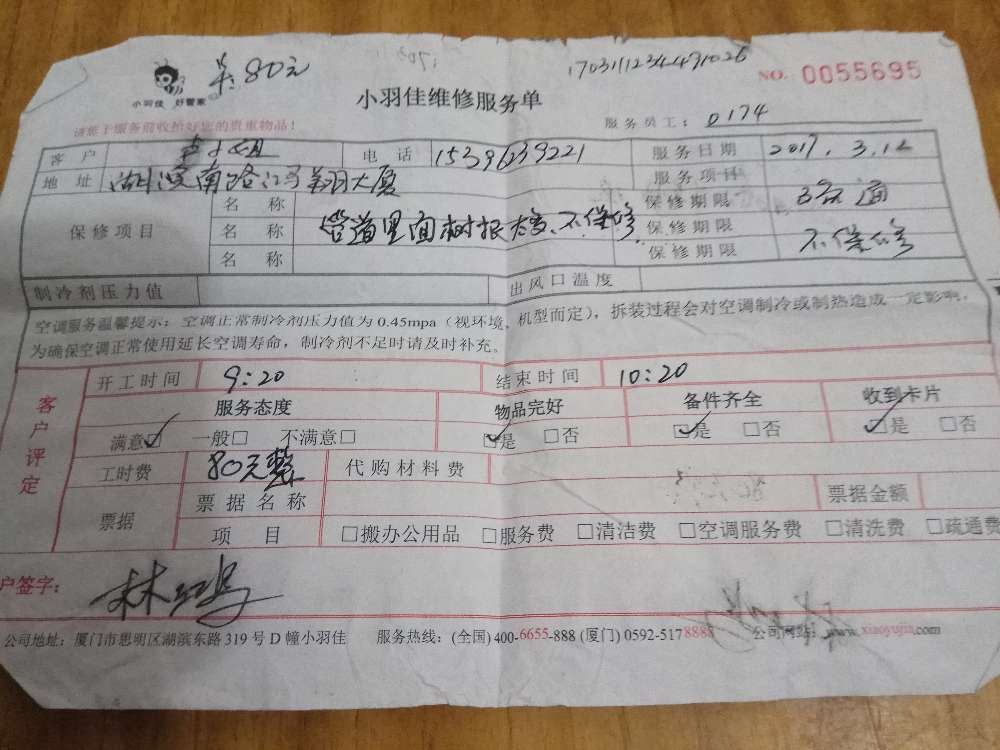 吴80元
1703111234491026
NO. 0055695
小羽佳 好管家
小羽佳维修服务单
服务员工: 0174
请您于服务前收拾好您的贵重物品!
客户 电话 15396239221 服务日期 2017.3.12
地址 湖滨南路 大厦 服务项目
保修项目 名称 保修期限
名称 管道里面树根太多、不保修 保修期限
名称 保修期限 不保修
制冷剂压力值 出风口温度
空调服务温馨提示:空调正常制冷剂压力值为0.45mpa(视环境、机型而定),拆装过程会对空调制冷或制热造成一定影响,
为确保空调正常使用延长空调寿命,制冷剂不足时请及时补充。
客户评定
开工时间 9:20 结束时间 10:20
服务态度 物品完好 备件齐全 收到卡片
满意☑ 一般□ 不满意□ ☑是 □否 ☑是 □否 ☑是 □否
工时费 80元整 代购材料费
票据 票据名称 票据金额
项目 □搬办公用品 □服务费 □清洁费 □空调服务费 □清洗费 □疏通费
户签字:
公司地址:厦门市思明区湖滨东路319号D幢小羽佳 服务热线:(全国)400-6655-888(厦门)0592-5178888 公司网站:www.xiaoyujia.com